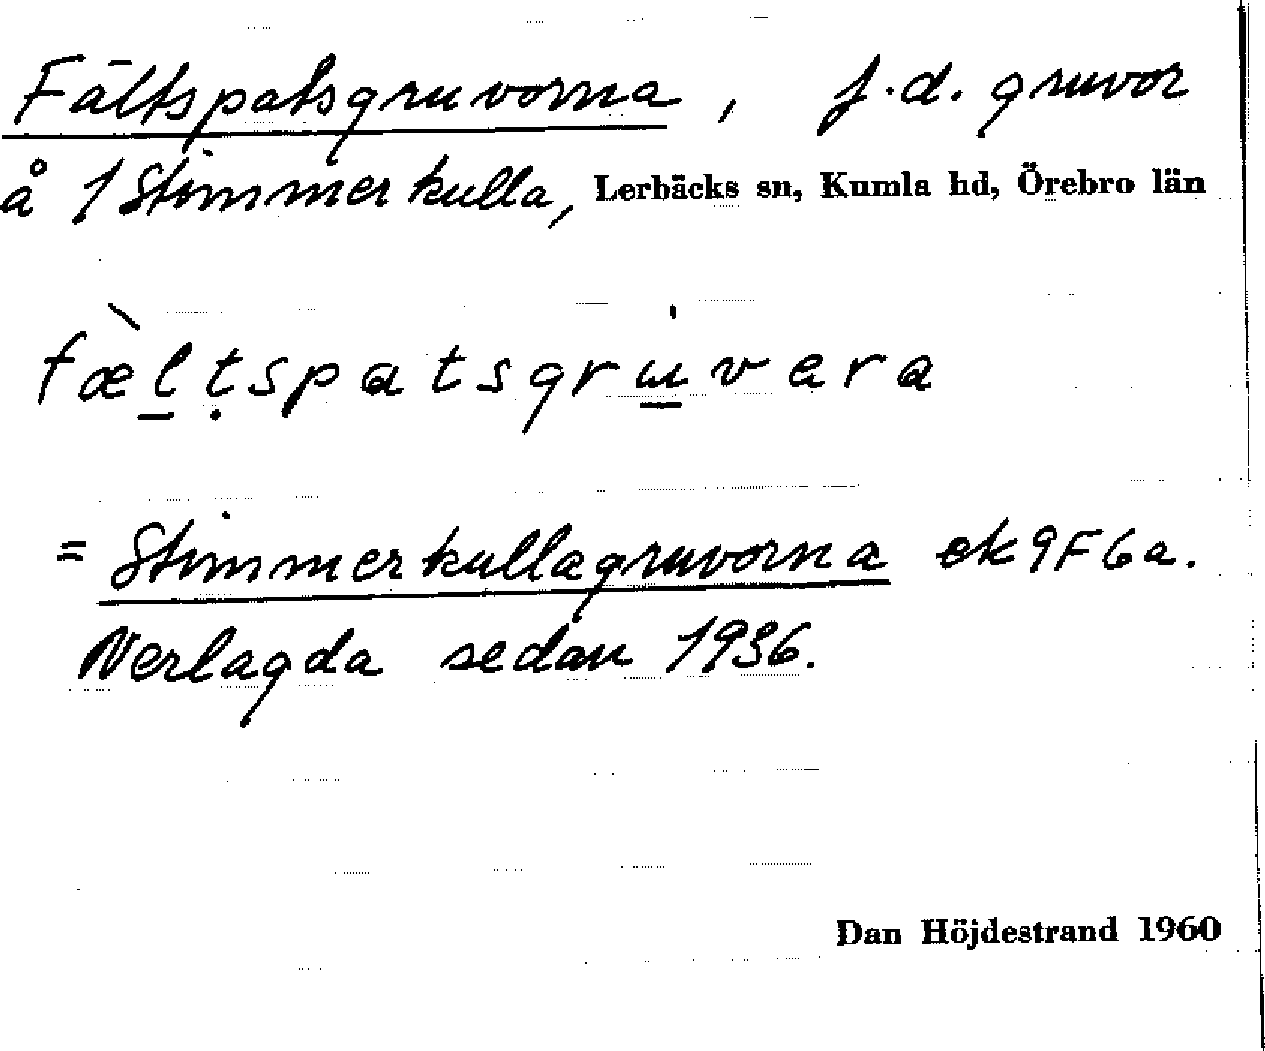 Fältspatsgruvorna, f.d. gruvor
å 1 Stimmerkulla, Lerbäcks sn, Kumla hd, Örebro län
fæ̀l̠ṭspatsgrɯ̠́vara
= Stimmerkullagruvorna ek 9F6a.
Nerlagda sedan 1936.
Dan Höjdestrand 1960